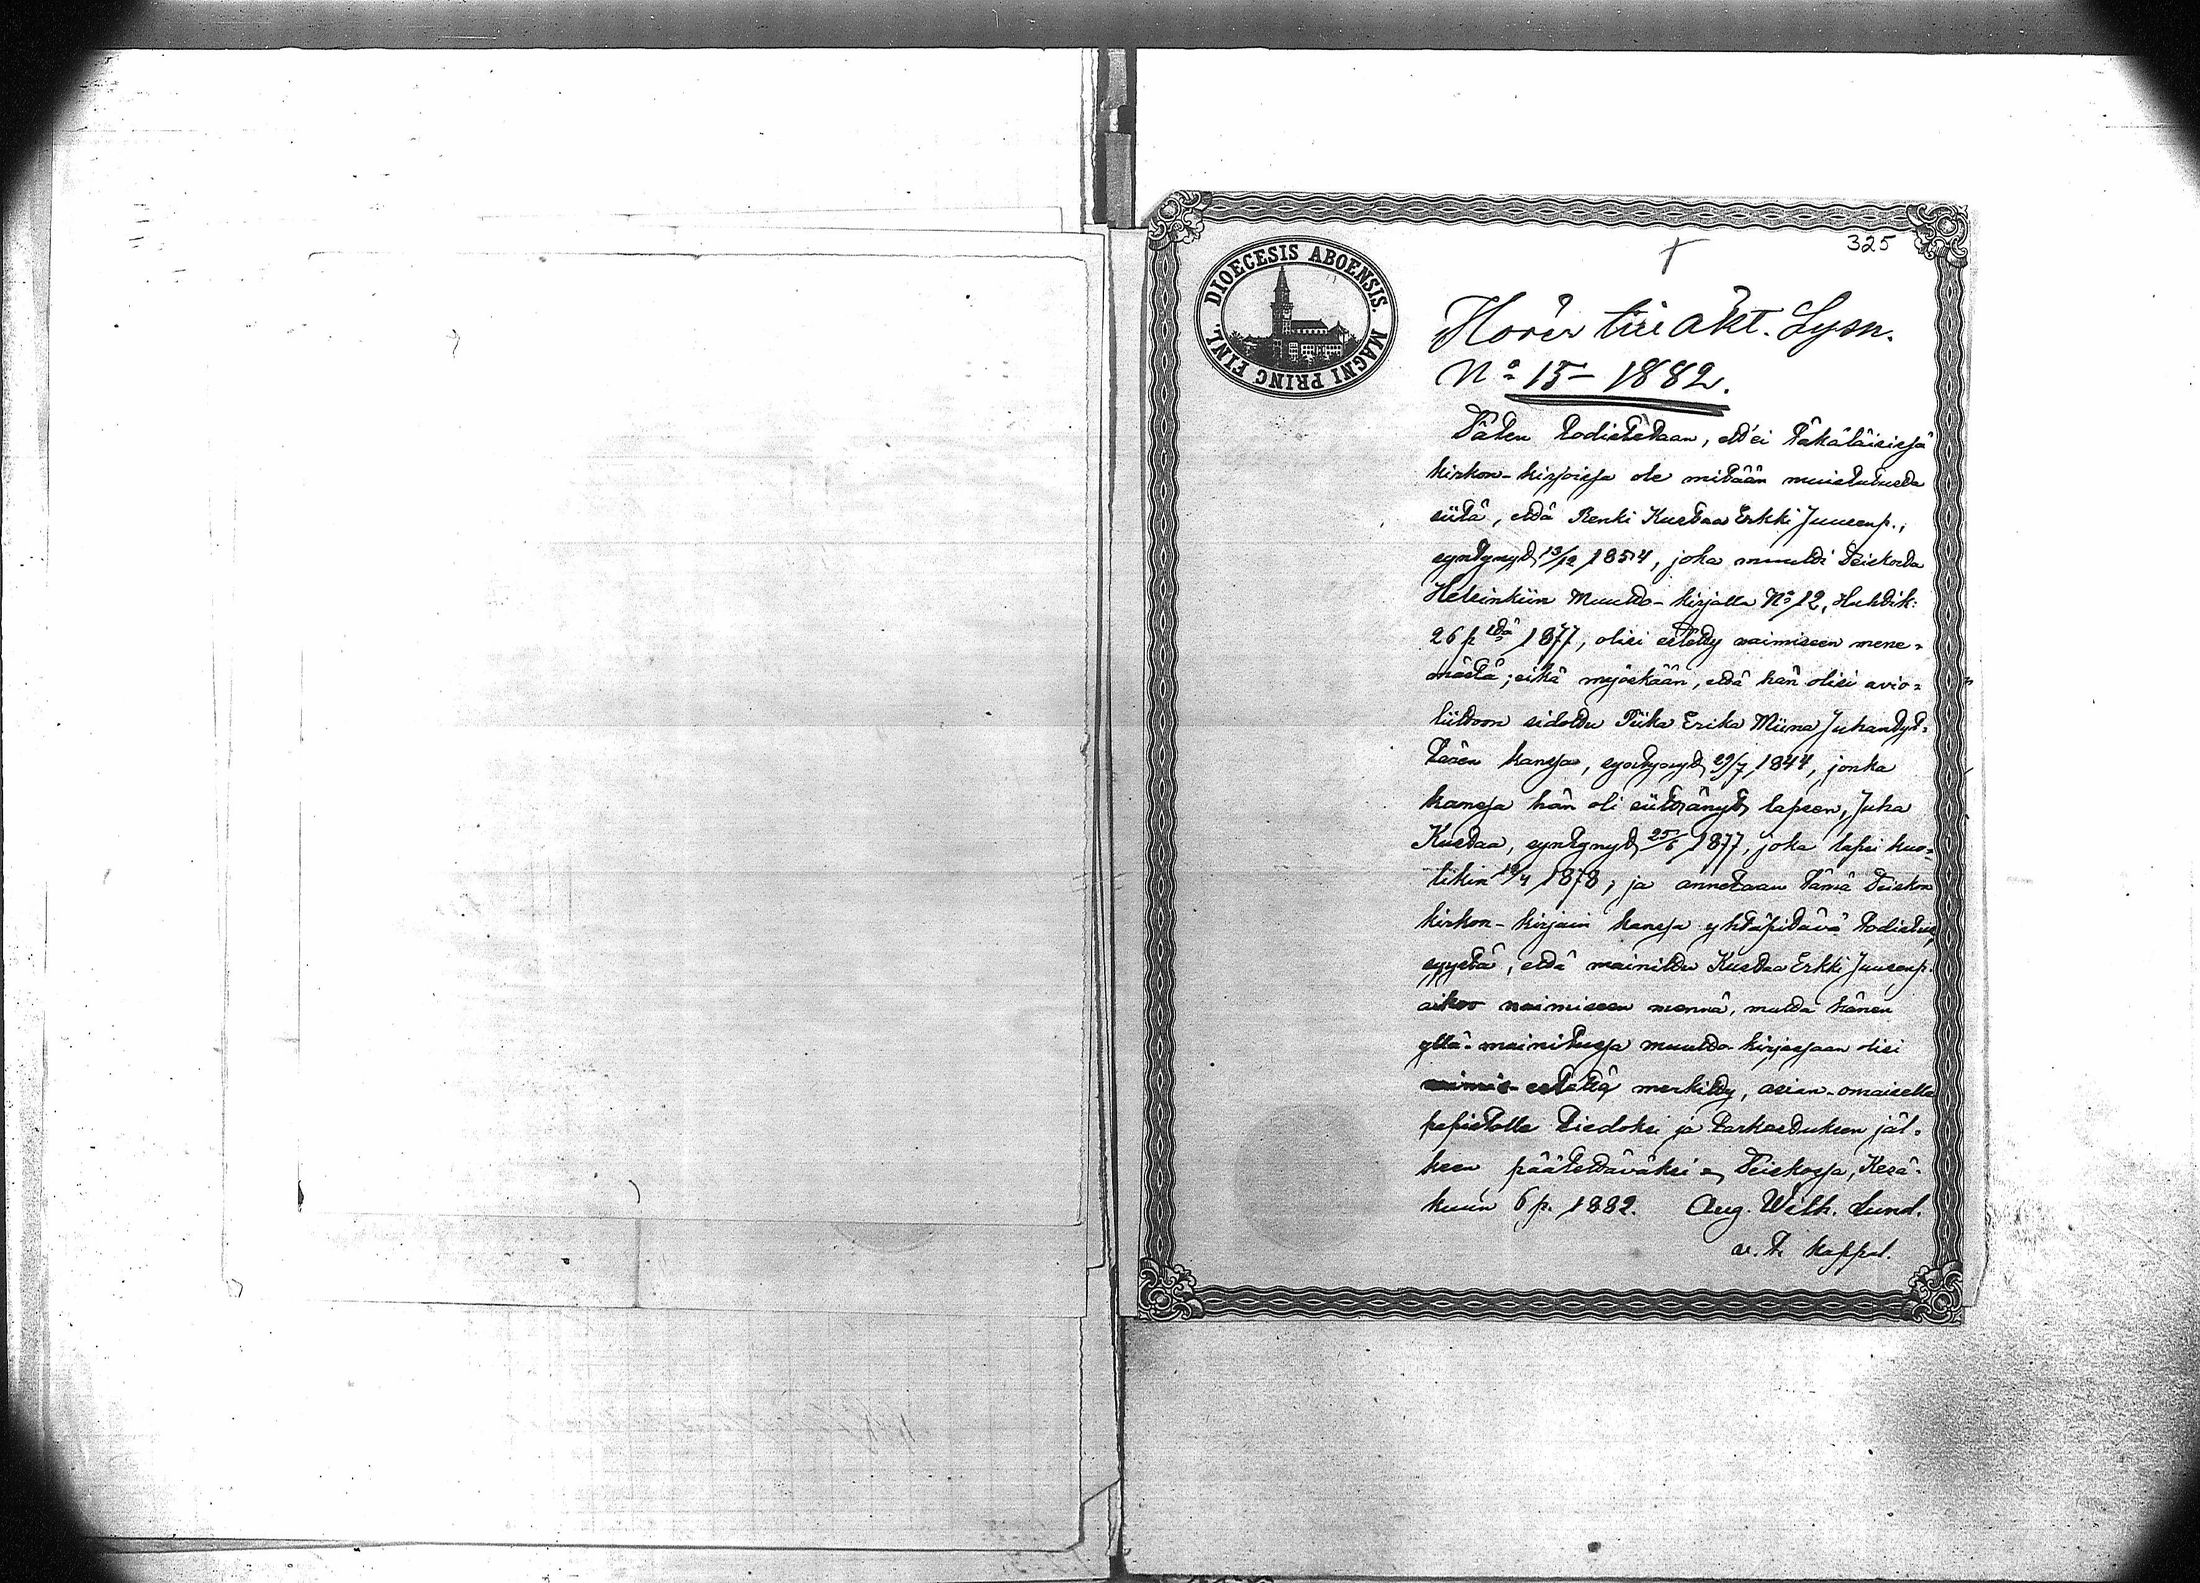 325
DIOECESIS ABOENSIS. MAGNI PRINC FINL.
Hörer till akt. Lysn.
No 15 – 1882.
Täten todistetaan, ett'ei täkäläisissä
kirkon-kirjoissa ole mitään muistutusta
siitä, että Renki Kustaa Erkki Juusenp.,
syntynyt 13/12 1854, joka muutti Teiskosta
Helsinkiin muutto-kirjalla No 12, Huhtik:
26 p ltä 1877, olisi estetty naimiseen mene-
mästä; eikä myöskään, että hän olisi avio-
liittoon sidottu Piika Erika Miina Juhantyt-
tären kanssa, syntynyt 29/7 1844, jonka
kanssa hän oli siittänyt lapsen, Juha
Kustaa, syntynyt 25/6 1877, joka lapsi kuo-
likin 12/4 1878; ja annetaan tämä Teiskon
kirkon-kirjain kanssa yhtäpitävä todistus
syystä, että mainittu Kustaa Erkki Juusenp.
aikoo naimiseen mennä, mutta hänen
yllä-mainitussa muutto-kirjassaan olisi
estettä merkitty, asian-omaiselle
papistolle tiedoksi ja tarkastuksen jäl-
keen päätettäväksi Teiskossa, Kesä-
kuun 6 p. 1882. Aug. Wilh. Lund.
v. t. kappal.